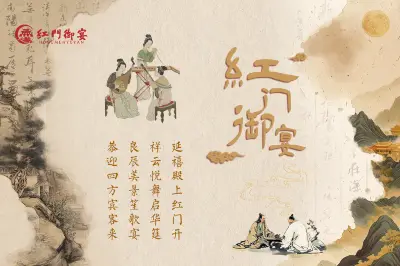 红門御宴
红门御宴
延禧殿上红门开
祥云悦舞启华筵
良辰美景笙歌宴
恭迎四方宾客来